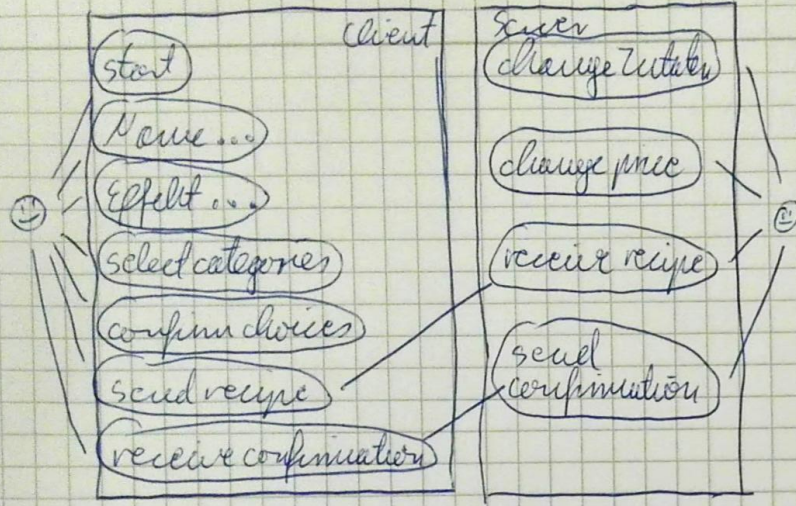 client
start
Name...
Effekt...
select categories
confirm choices
send recipe
receive confirmation
Server
change Zutaten
change price
receive recipe
send
confirmation